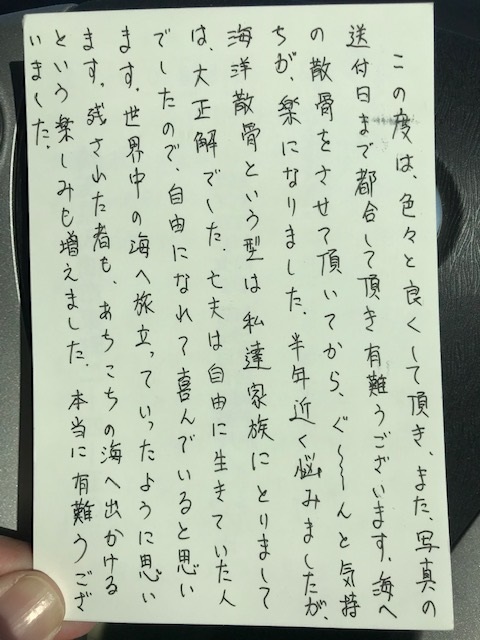 この度は、色々と良くして頂き、また、写真の
送付日まで都合して頂き有難うございます。海へ
の散骨をさせて頂いてから、ぐ〜〜んと気持
ちが、楽になりました。半年近く悩みましたが、
海洋散骨という型は私達家族にとりまして
は、大正解でした。亡夫は自由に生きていた人
でしたので、自由になれて喜んでいると思い
ます。世界中の海へ旅立っていったように思い
ます。残された者も、あちこちの海へ出かける
という楽しみも増えました。本当に有難うござ
いました。